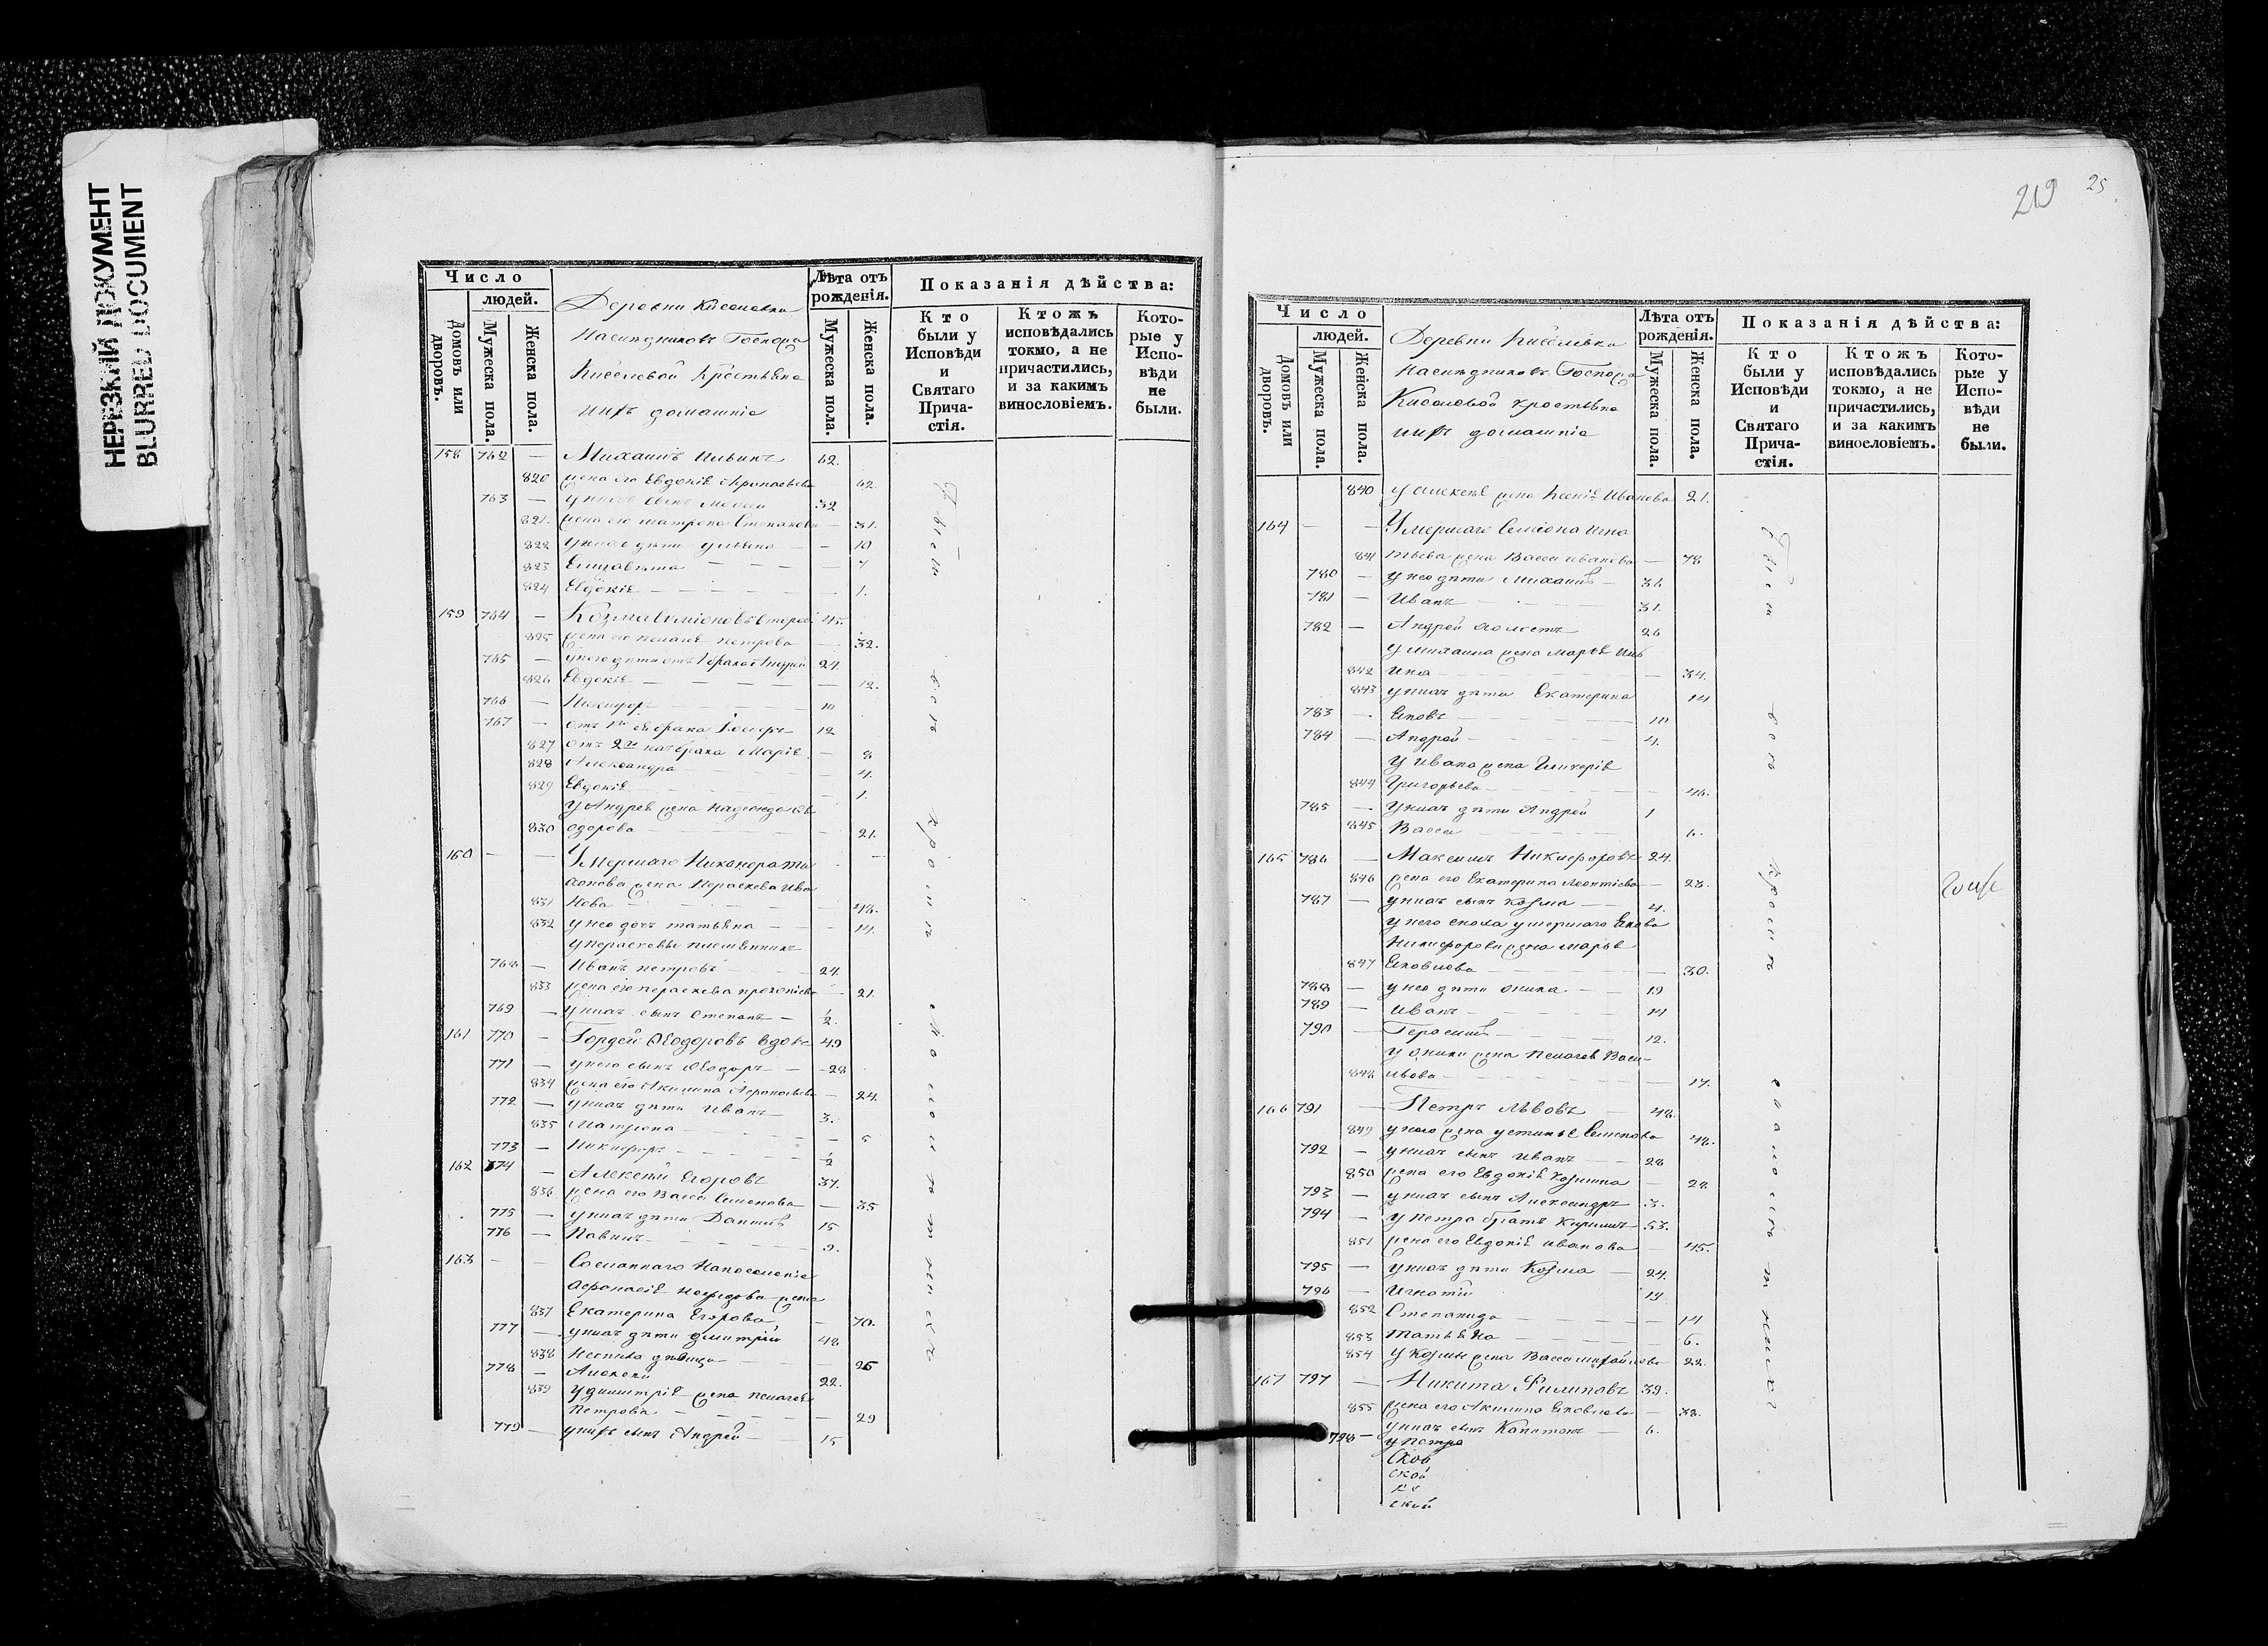 НЕРЕЗКИЙ ДОКУМЕНТ
BLURRED DOCUMENT
Число
людей.
Домовъ или дворовъ.
Мужеска пола.
Женска пола.
Деревни Киселевки
Наследниковъ Госпожи
Киселевой Крестьяне
ихъ домашніе
Лѣта отъ рожденія.
Мужеска пола.
Женска пола.
Показанія дѣйства:
Кто были у Исповѣди и Святаго Прича-стія.
Ктожъ исповѣдались токмо, а не причастились, и за какимъ винословіемъ.
Кото-рые у Испо-вѣди не были.
158 762 — Михаилъ Ильинъ 62.
820 жена его Евдокія 62.
763 — у нихъ сынъ 32
821. жена его Матрона Степанова — 31.
822 у нихъ дѣти Ульяна — — 10
823 Елисавета — — — — 7
824 Евдокія — — — — 1.
159 764 — Козма Симіоновъ вторый 45.
825 жена его Пелагея Петрова — 32.
765 — у него дѣти отъ 1 брака Андрей 24.
826 Евдокія — — — — 12.
766 — Никифоръ — — — 10
767 — отъ брака 12
827 отъ 2го брака Марія — 8
828 Александра — 4.
829 Евдокія — 1.
У Андрея жена Надежда Ѳе
830 одорова — — — — 21.
160 — — Умершаго Никанора
жена Параскева Ива
831 нова — — — 48.
832 у нее дочь Татьяна — — 14.
у Параскевы племянникъ
768 — Иванъ Петровъ — 24.
833 жена его Параскева Прокопіева — 21.
769 — у нихъ сынъ Степанъ — ½.
161 770 — Гордей Ѳеодоровъ вдовъ 49
771 — у него сынъ Ѳеодоръ — 28
834 жена его Акилина — 24.
772 — у нихъ дѣти Иванъ 3.
835 Матрона — — — — 5
773 — Никифоръ — — ½
162 774 — Алексѣй Егоровъ 37.
836 жена его Васса Семенова — 35
775 — у нихъ дѣти Даніилъ 15
776 — Павелъ — — — — 9.
163 — — Сосланнаго на поселеніе
Афонасія жена
837 Екатерина Егорова — 70.
777 — у нихъ дѣти Дмитрій 48
838 дѣвица — 26
778 — Алексѣй 22.
839 У Димитрія жена Пелагея
Петрова — — — — 29
779 — у нихъ сынъ Андрей — — 15
219 25
Число
людей.
Домовъ или дворовъ.
Мужеска пола.
Женска пола.
Деревни Киселевки
Наследниковъ Госпожи
Киселевой крестьяне
ихъ домашніе
Лѣта отъ рожденія.
Мужеска пола.
Женска пола.
Показанія дѣйства:
Кто были у Исповѣди и Святаго Прича-стія.
Ктожъ исповѣдались токмо, а не причастились, и за какимъ винословіемъ.
Кото-рые у Испо-вѣди не были.
840 у Алексея жена Ксенія Иванова 21.
164 — — Умершаго Симіона Игна
841 тьева жена Васса Иванова — 78
780 — у нее дѣти Михаилъ — 36
781 — Иванъ — — — 31.
782 — Андрей холостъ 26
у Михаила жена Марья Иль
842 ина — — — — 34.
843 у нихъ дѣти Екатерина 14
783 — Яковъ — — — 10
784 — Андрей — — — 4.
У Ивана жена Гликерія
844 Григорьева — — —
785 — у нихъ дѣти Андрей 1
845 Васса — — — — 6.
165 786 — Максимъ Никифоровъ 24.
846 жена его Екатерина Леонтіева — 23.
787 — у нихъ сынъ Козма — — 4.
у него сноха умершаго Якова
Никифорова жена Марья
847 Яковлева — — — — 30.
788 — у нее дѣти Оника — — 19
789 — Иванъ — — — 14
790 — Герасимъ — — — 12.
у Оники жена Пелагея Васи-
848 льева — — — — 17.
166 791 — Петръ Львовъ — 48.
849 у него жена Устинья Семенова 48.
792 — у нихъ сынъ Иванъ — — 28
850 жена его Евдокія Козмина — 28.
793 — у нихъ сынъ Александръ 3.
794 — у Петра братъ Кириллъ 53.
851 жена его Евдокія Иванова — 45.
795 — у нихъ дѣти Козма — 24.
796 — Игнатій 19
852 Степанида — — — — 14
853 Татьяна — — — — 6.
854 у Козмы жена Васса Михайлова 22.
167 797 — Никита Филиповъ 39.
855 жена его Акилина Яковлева — 38.
798 — у нихъ сынъ Капитонъ — 6.
у Петра
ской
ской
ской